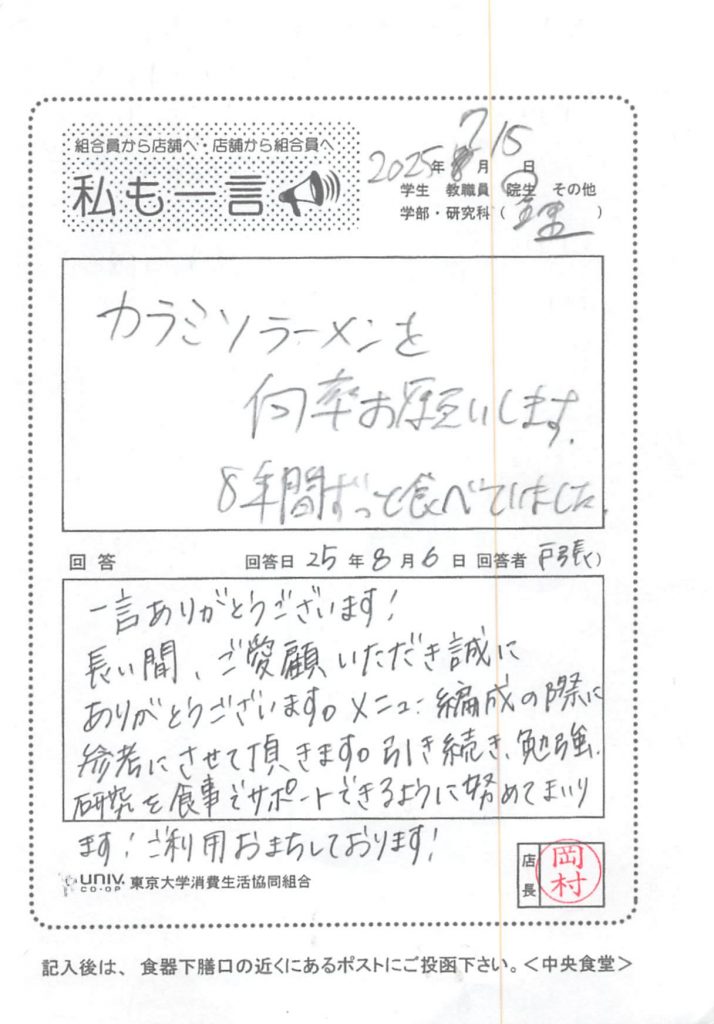 組合員から店舗へ・店舗から組合員へ
私も一言
2025年 7月 15日
学生 教職員 院生 その他
学部・研究科 ( )
カラミソラーメンを
何卒お願いします.
8年間ずっと食べていました.
回答 回答日 25年 8月 6日 回答者 戸張)
一言ありがとうございます!
長い間、ご愛顧いただき誠に
ありがとうございます。メニュー編成の際に
参考にさせて頂きます。引き続き、勉強、
研究を食事でサポートできるように努めてまいり
ます!ご利用おまちしております!
UNIV. CO-OP 東京大学消費生活協同組合
店長 岡村
記入後は、食器下膳口の近くにあるポストにご投函下さい。<中央食堂>